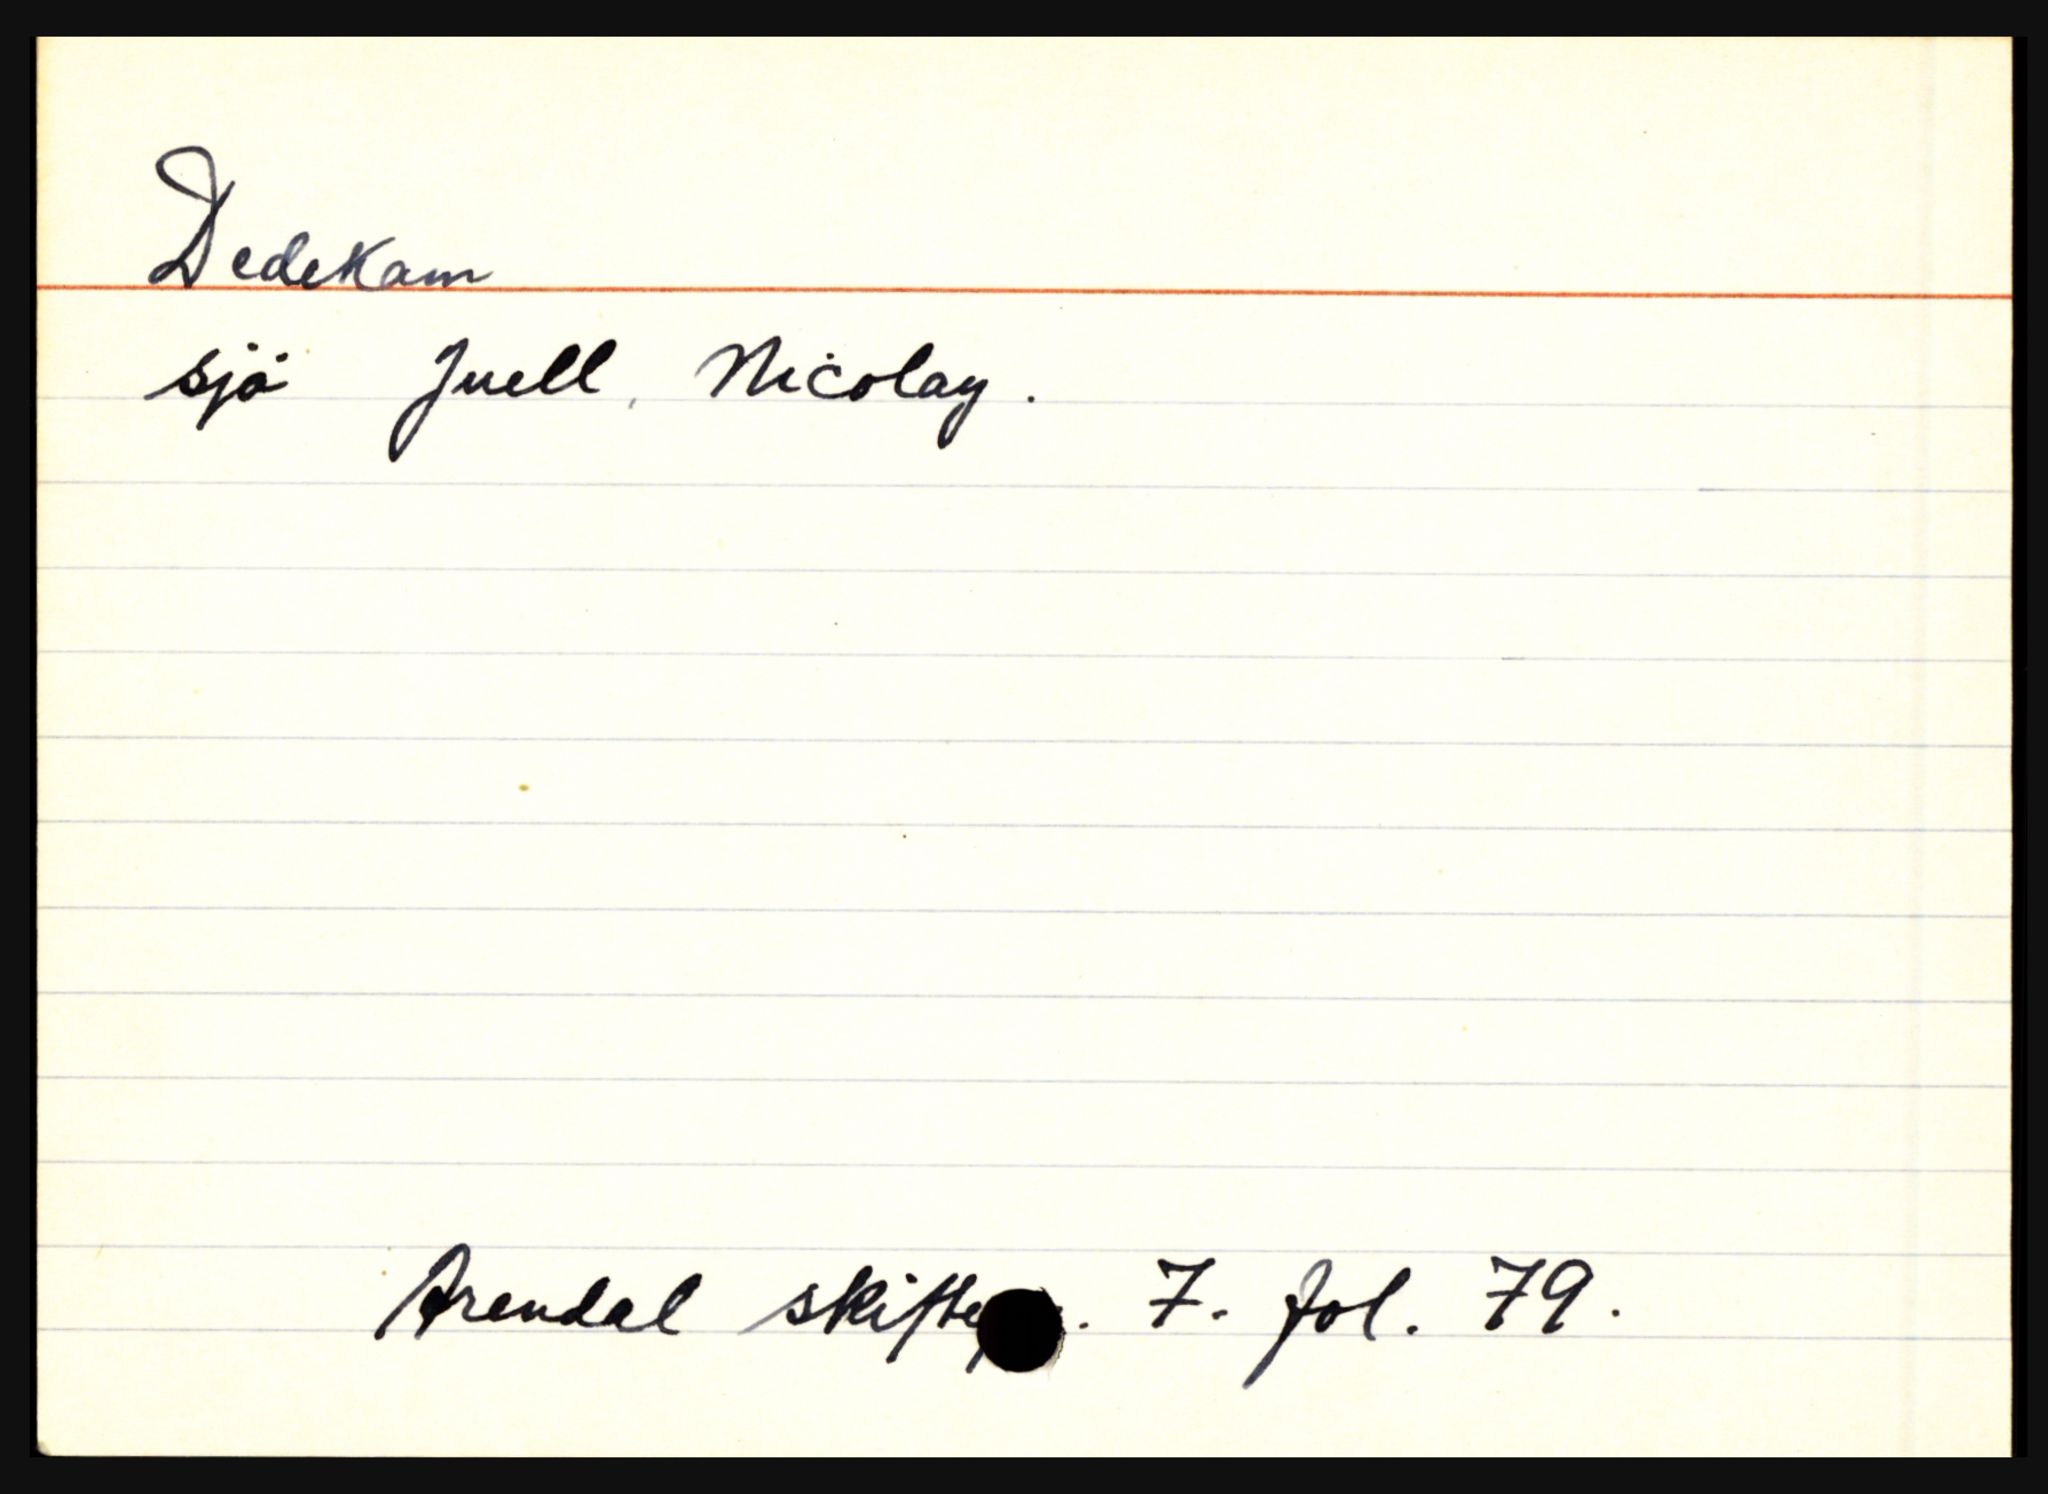 Dedekam
sjå Juell, Nicolay.
Arendal 7. fol. 79.